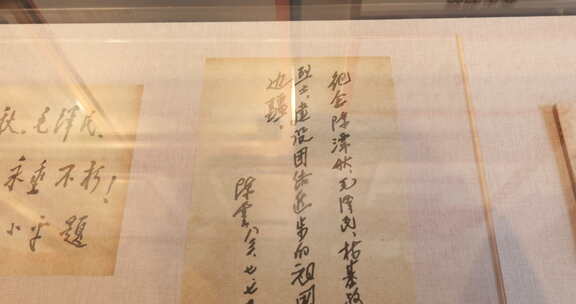 秋、毛泽民、
永垂不朽！
小平题
纪念陈潭秋、毛泽民、林基路
烈士，建设团结进步的祖国
边疆。
陈云 八六.七.七